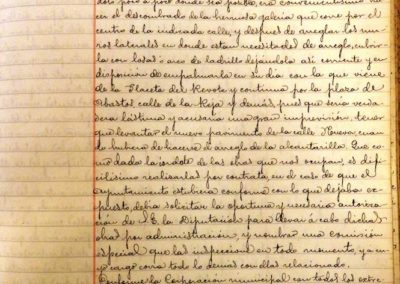 poco á poco desde sea posible, era convenientísimo ha-
cer el descombrado de la hermosa galeria que corre por el
centro de la indicada calle, y despues de arreglar los mu-
ros laterales en donde estan necesitados de arreglo, cubrir-
la con losas ó arco de ladrillo dejandola asi corriente y en
disposicion de empalmarla en su dia con la que viene
de la Placeta del Revote y continua por la plaza de
Abastos calle de la Reja y demás, pues que seria verda-
dera lástima y acusaria una gran imprevision, tener
que levantar el nuevo pavimento de la calle Honero, cuan-
do hubiera de hacerse el arreglo de la alcantarilla. Que co-
mo dada la indole de las obras que nos ocupan, es di-
ficilísimo realizarlas por contrata, en el caso de que el
Ayuntamiento estubiera conforme con lo que dejaba ex-
puesto, debia solicitar la oportuna y necesaria autoriza-
cion de S.E. la Diputacion para llevar á cabo dichas
obras por administracion, y nombrar una comision
especial que las inspeccione en todo momento, y á cu-
yo cargo corra todo lo demás con ellas relacionado.
Conforme la Corporacion municipal con todos los extre-